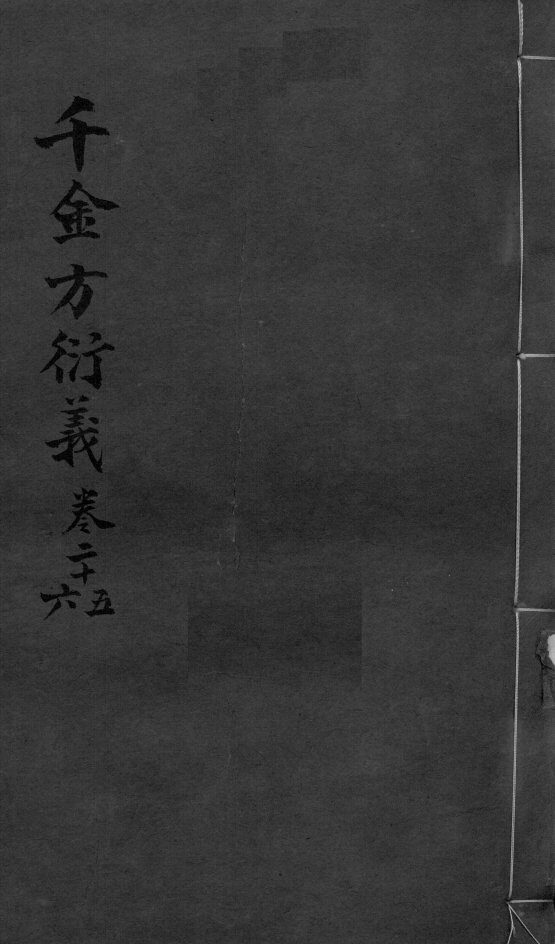 千金方衍義 卷二十五
六